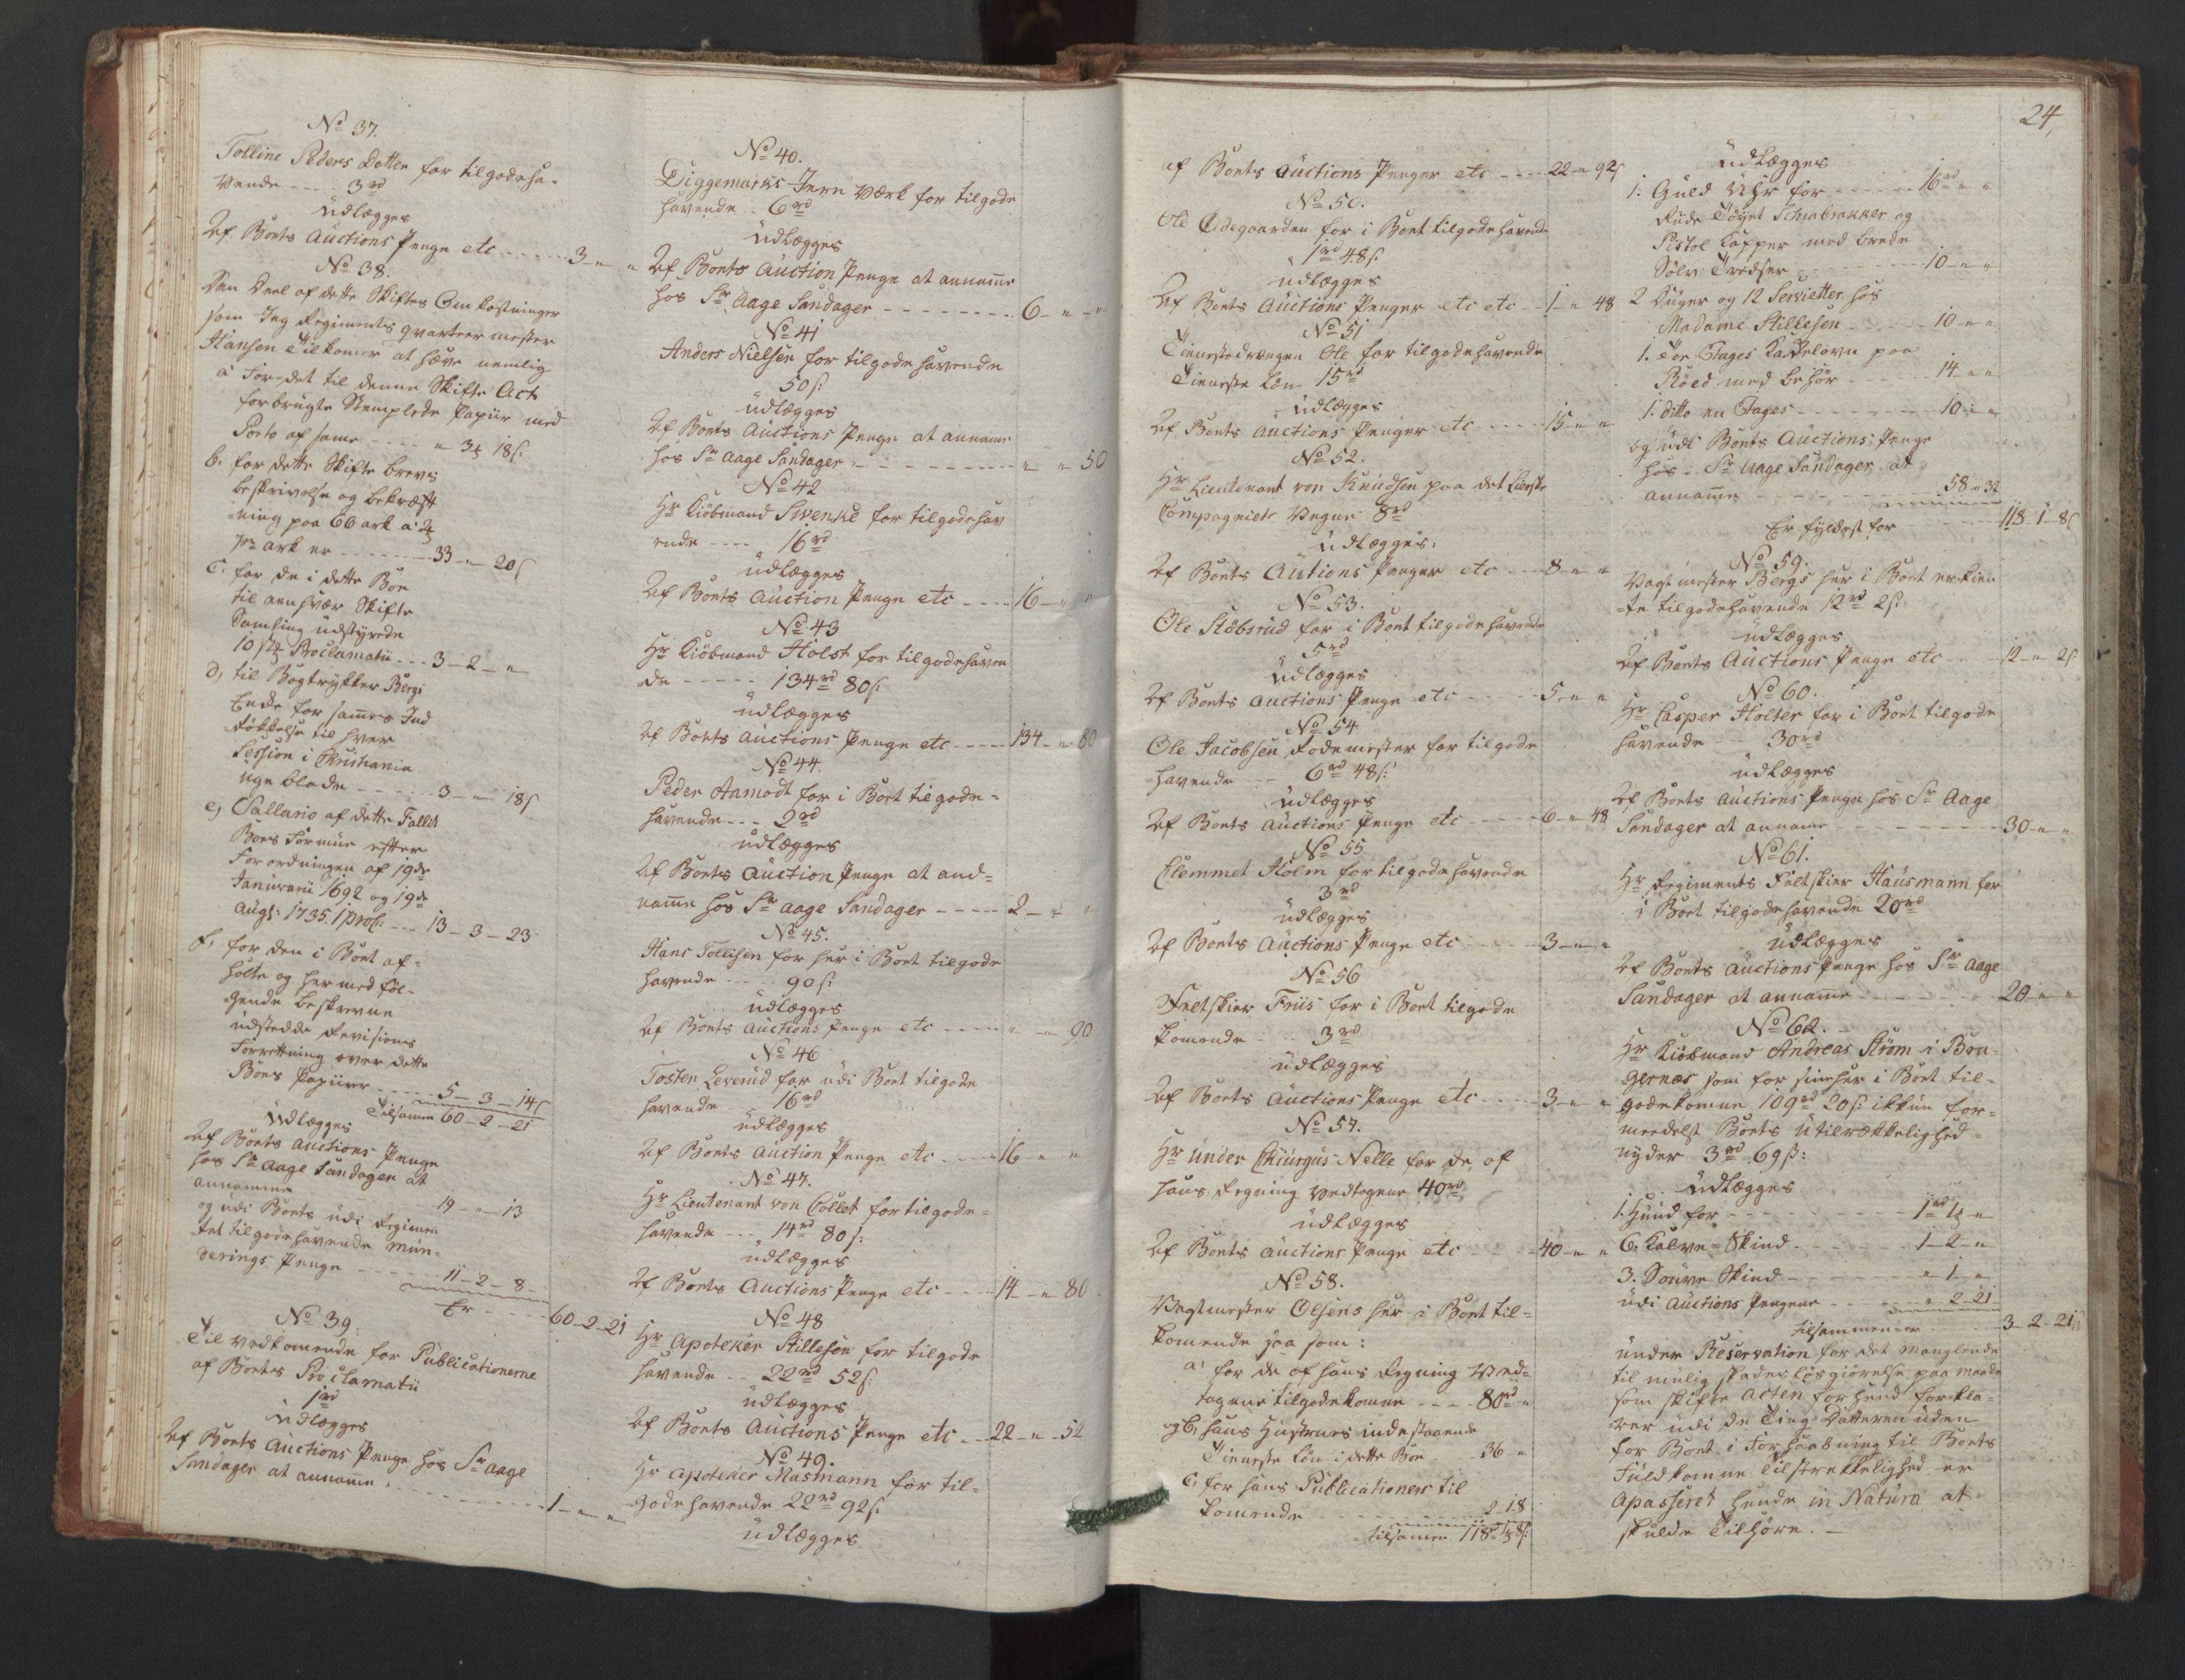 No 37.
Tolline Peders Datter for tilgodeha-
vende --- 3 rd
Udlægges
Af Boets Auctions Penge etc ----- 3 - " - "
No 38.
Den Deel af dette Skiftes Omkostninger
som Jeg Regiments qvarteermester
Hansen Tilkomer at hæve nemlig
a' For det til denne Skifte Act
forbrugte Stemplede Papiir med
Porto af same ---- " 3 18 s:
b. for dette Skifte brevs
beskrivelse og bekræft
ning paa 66 ark a'
pr ark er ------ 33 - " 20 s
c. for de i dette Boe
til een hver Skifte
Samling udstyrede
10 Proclamatii --- 3 - 2 - "
d, til Bogtrykker Bergs
Enke for sammes Ind
rökkelse til hver
Session i Christiania
uge blade ----- 3 - " 18 s
e, Sallario af dette Fallit
Boes Formue efter
Forordningen af 19de
Januarii 1692 og 19de
Augs: 1735. 1 proC: --- 13 - 3 - 23
f, for den i Boet af-
holte og her med föl-
gende beskrevne
udstedde Revisions
Forrettning over dette
Boes Papiirer ----- 5 - 3 - 14 s
Tilsamen 60 - 2 - 21
Udlægges
Af Boets Auctions Penge
hos Sr Aage Sandager at
annamme 19 - " - 13
og udi Boets udi Regimen
tet tilgodehavende mun-
derings Penge ------ 11 - 2 - 8 -
Er ---- 60 - 2 - 21
No 39.
Til vedkomende for Publicationerne
af Boets Proclamatii
1 rd
Udlægges
Af Boets Auctions Penge hos Sr Aage
Sandager at anname ------ 1 - " - "
No 40.
Diggemarks Jern Værk for tilgode
havende - 6 rd
udlægges
Af Boets Auction Penge at anname
hos Sr Aage Sandager -------- 6 - " - "
No 41
Anders Nielsen for tilgodehavende
50 s:
udlægges
Af Boets Auctions Penge at anname
hos Sr Aage Sandager -------- " - " 50
No 42
Hr Kiöbmand Svenke for tilgodehav
ende ---- 16 rd
udlægges
Af Boets Auction Penge etc ---- 16 - " "
No 43
Hr Kiöbmand Holst for tilgodehaven
de ----- 134 rd 80 s:
udlægges
Af Boets Auctions Penge etc ---- 134 - " 80
No 44.
Peder Aamodt for i Boet tilgode-
havende --- 2 rd
udlægges
Af Boets Auction Penge at and-
namme hos Sr Aage Sandager ----- 2 - " "
No 45.
Hans Tollifsen for her i Boet tilgode
havende ---- 90 s:
udlægges
Af Boets Auctions Penge etc ---- " - " 90
No 46
Tosten Leverud for udi Boet tilgode
havende 16 rd
udlægges
Af Boets Auction Penge etc ---- 16 - " "
No 47.
Hr Lieutenant von Collet for tilgode-
havende --- 14 rd 80 s:
udlægges
Af Boets Auctions Penge etc ---- 14 - " 80
No 48
Hr Apoteker Stillesen for tilgode
havende -- 22 rd 52 s:
udlægges
Af Boets Auctions Penge etc -- 22 - " - 52
No 49.
Hr Apoteker Masmann for til-
godehavende 22 rd 92 s:
udlægges
24,
af Boets Auctions Penger etc ---- 22 - " 92 s
No 50.
Ole Ödegaarden for i Boet tilgodehavende
1 rd 48 s:
udlægges
Af Boets Auctions Penger etc etc -- 1 - " 48
No 51
Tienestedrengen Ole for tilgodehavende
Tieneste Lön 15 rd
udlægges
Af Boets Auctions Penger etc ---- 15 - " "
No 52.
Hr Lieutenant von Knudsen paa det Lierske
Compagniets Vegne 8 rd
udlægges.
Af Boets Auctions Penger etc --- 8 - " "
No 53.
Ole Stöbsrud for i Boet tilgodehavende
5 rd
udlægges
Af Boets Auctions Penge etc ----- 5 - " "
No 54
Ole Jacobsen Rodemester for tilgode
havende --- 6 rd 48 s:
udlægges
Af Boets Auctions Penge etc ----- 6 - " 48
No 55
Clemmet Holm for tilgodehavende
3 rd
udlægges
Af Boets Auctions Penge etc ----- 3 - " "
No 56
Feltskier Friis for i Boet tilgode
komende --- 3 rd
udlægges
Af Boets Auctions Penge etc ---- 3 - " "
No 57.
Hr Under Chiurgus Nelle for de af
hans Regning vedtagne 40 rd
udlægges
Af Boets Auctions Penge etc ---- 40 - " "
No 58.
Vagtmester Olsens her i Boet til-
komende saa som:
a' for de af hans Regning Ved-
tagne tilgodekomne ---- 80 rd "
og b, hans Hustrues indestaaende
Tieneste Lön i dette Boe -- 36 - "
c, for hans Publicationers til
komende ------- 2. 1. 8
tilsamen 118 rd 1 8 s:
udlægges
1. Guld Uhr for ------ 16 rd " "
Ride Töyet Schabrakker og
Pistol Kapper med brede
Sölv Tredser ------ 10 - " "
2 Duger og 12 Servietter hos
Madame Stillesen ----- 10 - " "
1. Toe Etages Kakkelovn paa
Röed med behör ----- 14 - " "
1. ditto en Etages ------ 10 - " "
og udi Boets Auctions Penge
hos Sr Aage Sandager at
annamme ------ 58 - " 32
Er fyldest for ------ 118 - 1 - 8 s
No 59.
Vagtmester Bergs her i Boet erkien
te tilgodehavende 12 rd 2 s:
udlægges
Af Boets Auctions Penge etc --- 12 - " 2 s
No 60.
Hr Casper Holter for i Boet tilgode
havende --- 30 rd
udlægges
Af Boets Auctions Penge hos Sr Aage
Sandager at anname ------ 30 - " "
No 61.
Hr Regiments Feltskier Hausmann for
i Boet tilgodehavende 20 rd
udlægges
Af Boets Auctions Penge hos Sr Aage
Sandager at anname ------ 20 - " "
No 62.
Hr Kiöbmand Andreas Ström i Bra-
gernæs som for sine her i Boet til-
godekomne 109 rd 20 s: ikkun for-
meedelst Boets Utilrækkelighed
nyder 3 rd 69 s:
udlægges
1. Hund for ------ 1 rd 1 "
6. Kalve-Skind ------ 1 - 2 - "
3. Souve Skind ------ " 1 - "
udi Auctions Pengene ----- " 2 - 21
tilsammen er --- 3 - 2 - 21
under Reservation for det manglende
til mulig skadeslösgiörelse paa maade
som skifte Acten forhend forkla-
rer udi de Ting Datteren uden
for Boet i Forhaabning til Boets
Fuldkomne Tilstrekkelighed er
apasseret hende in Natura at
skulde Tilhöre. -